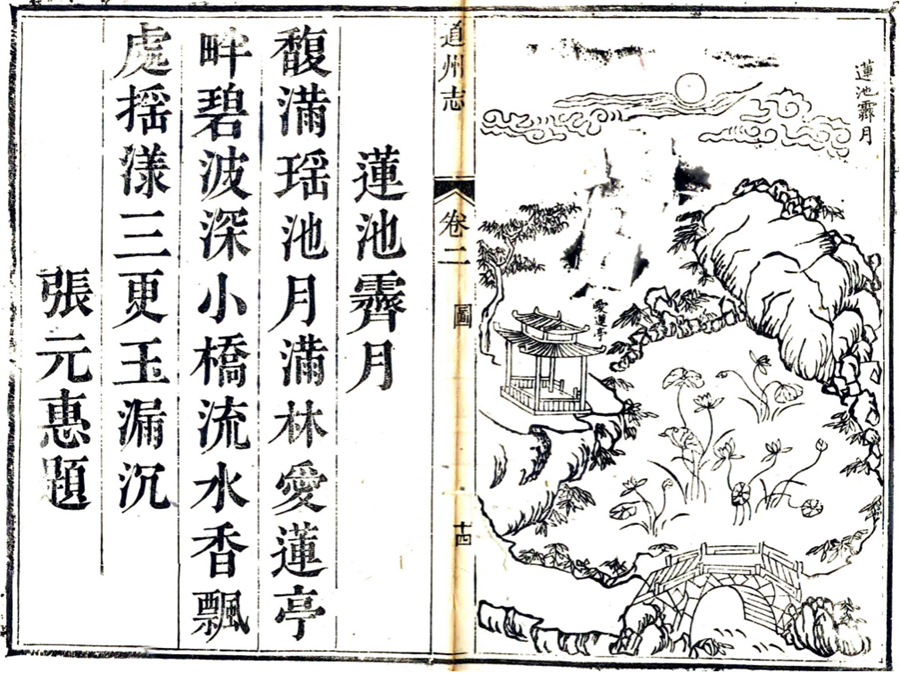 蓮池霽月
愛蓮亭
道州志
卷二
圖
十四
蓮池霽月
馥滿瑶池月滿林愛蓮亭
畔碧波深小橋流水香飄
處揺漾三更玉漏沉
張元惠題